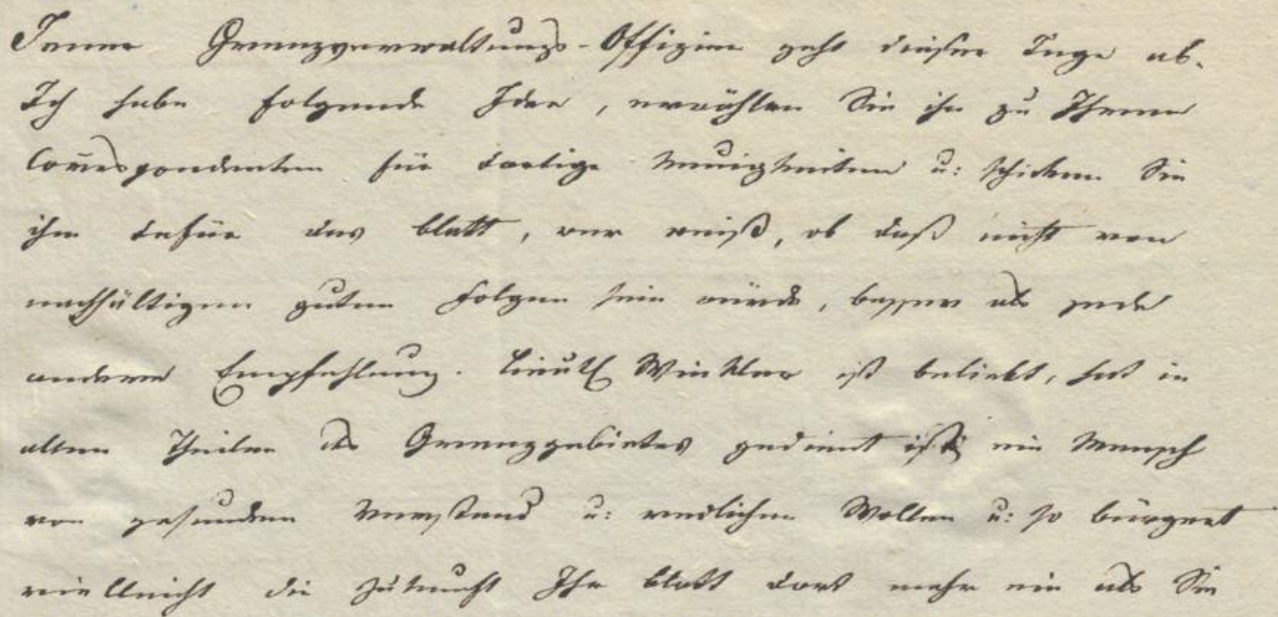 Jener Grenzverwaltungs-Offizier geht dieser Tage ab.
Ich habe folgende Idee, erwählen Sie ihn zu Ihrem
Correspondenten für dortige Neuigkeiten u: schicken Sie
ihm dafür das Blatt, wer weiß, ob daß nicht von
nachhältigen guten Folgen sein würde, besser als jede
andere Empfehlung. Lieut Winkler ist beliebt, hat in
allen Theilen des Grenzgebietes gedient ist ein Mensch
von gesundem Verstand u: redlichem Wollen u: so bürgert
vielleicht die Zukunft Ihr Blatt dort mehr ein als Sie